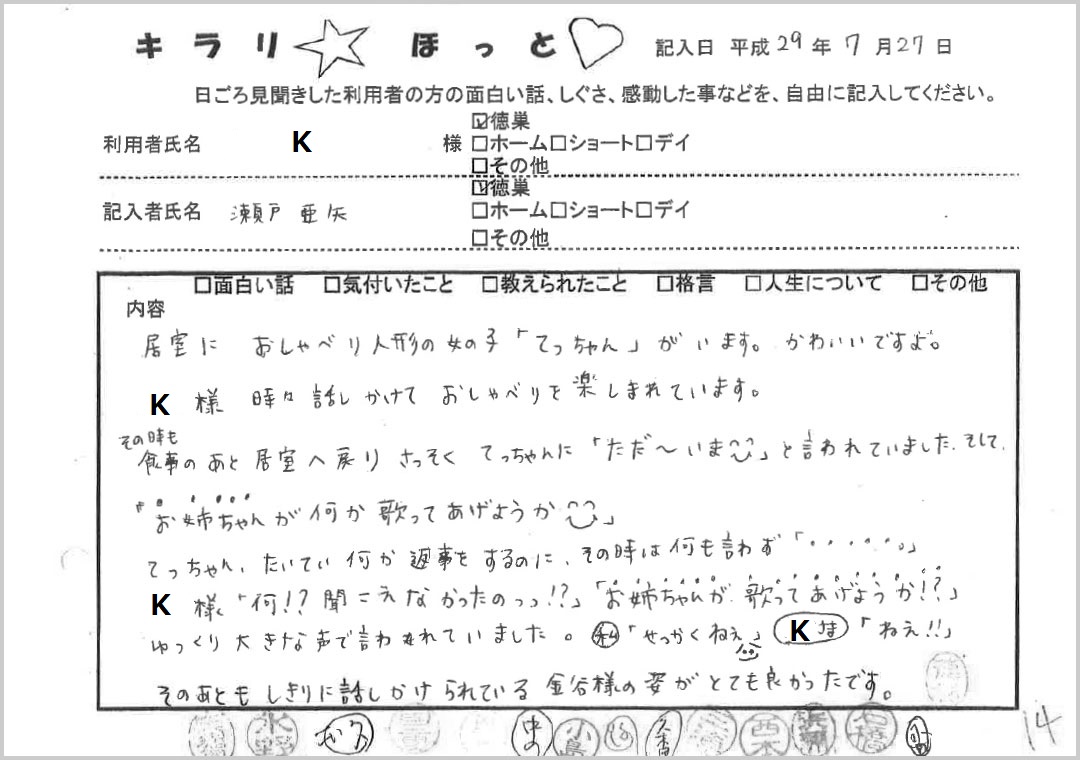 キラリ☆ ほっと♡ 記入日 平成29年7月27日
日ごろ見聞きした利用者の方の面白い話、しぐさ、感動した事などを、自由に記入してください。
利用者氏名 K 様 ☑徳巣
□ホーム□ショート□デイ
□その他
記入者氏名 瀬戸 亜矢 ☑徳巣
□ホーム□ショート□デイ
□その他
□面白い話 □気付いたこと □教えられたこと □格言 □人生について □その他
内容
居室に おしゃべり人形の女の子「てっちゃん」がいます。かわいいですよ。
K 様 時々 話しかけて おしゃべりを楽しまれています。
その時も
食事のあと 居室へ戻り さっそく てっちゃんに「ただ〜いま」と言われていました。そして、
「お姉ちゃんが何か歌ってあげようか」
てっちゃん、たいてい何か返事をするのに、その時は何も言わず「・・・・・。」
K 様「何!? 聞こえなかったのっっ!?」「お姉ちゃんが、歌ってあげようか!?」
ゆっくり大きな声で言われていました。 私「せっかくねぇ」 K さま「ねえ!!」
そのあとも しきりに話しかけられている 金谷様の姿がとても良かったです。
水野 中の 小島 西本 浜野 石橋
14